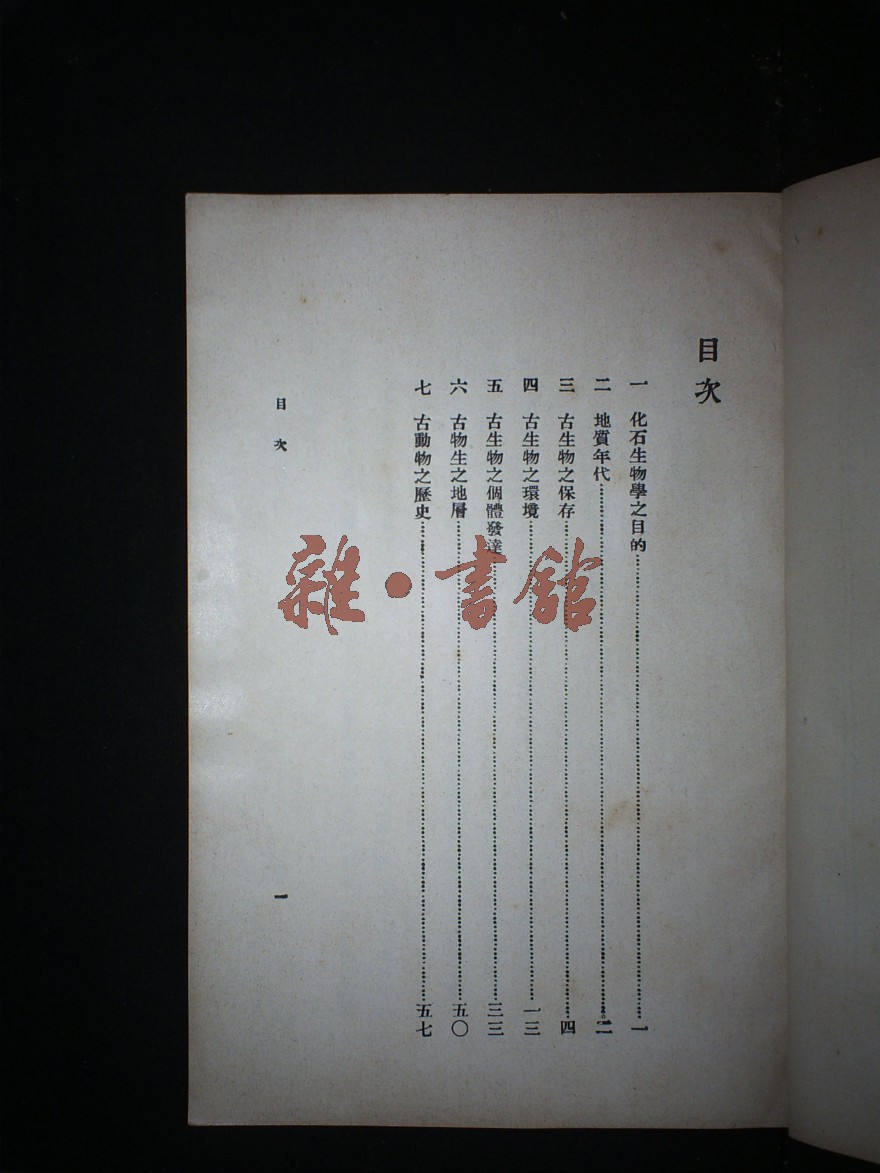 目次
一 化石生物學之目的……一
二 地質年代……二
三 古生物之保存……四
四 古生物之環境……一三
五 古生物之個體發達……三三
六 古物生之地層……五〇
七 古動物之歷史……五七
目次
一
雜·書館